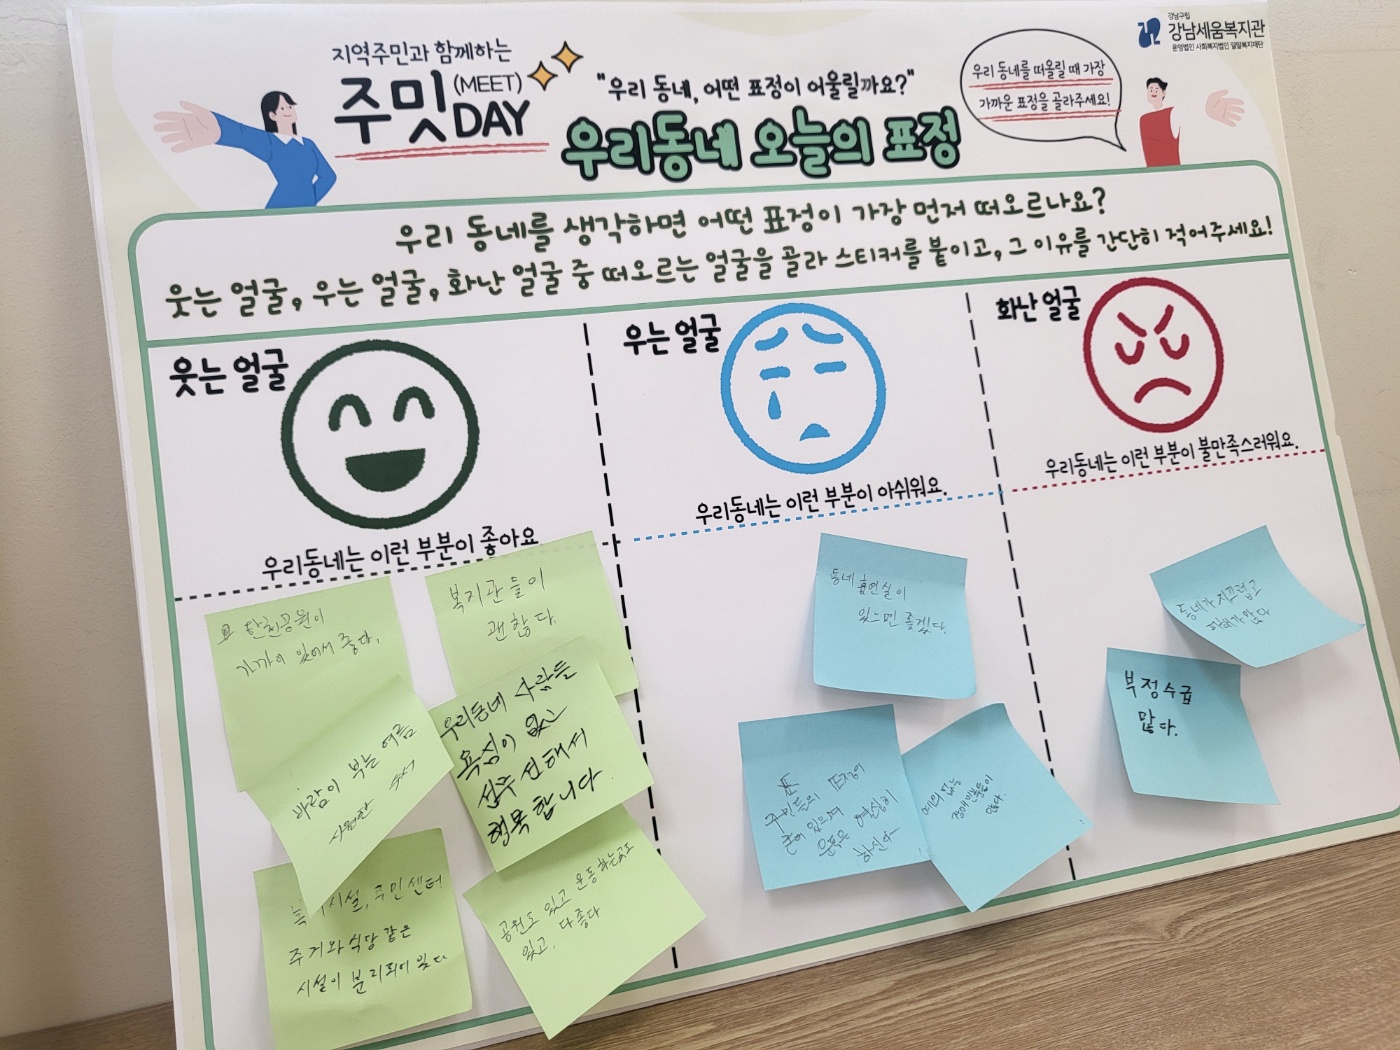 지역주민과 함께하는
주밋(MEET)DAY
"우리 동네, 어떤 표정이 어울릴까요?"
우리동네 오늘의 표정
우리 동네를 떠올릴 때 가장
가까운 표정을 골라주세요!
강남구립
강남세움복지관
운영법인 사회복지법인 밀알복지재단
우리 동네를 생각하면 어떤 표정이 가장 먼저 떠오르나요?
웃는 얼굴, 우는 얼굴, 화난 얼굴 중 떠오르는 얼굴을 골라 스티커를 붙이고, 그 이유를 간단히 적어주세요!
웃는 얼굴
우리동네는 이런 부분이 좋아요
탄천공원이
가까이 있어서 좋다.
복지관들이
괜찮다.
바람이 부는 여름
시원한
우리동네 사람들
욕심이 없는
행복합니다
시설, 주민센터
주거와 식당 같은
시설이 분리되어 있다
공원도 있고 운동하는곳도
있고, 다 좋다
우는 얼굴
우리동네는 이런 부분이 아쉬워요.
동네 흡연실이
있으면 좋겠다.
주민들의 표정이
하신다
예의 없는
장애인분들이
많다.
화난 얼굴
우리동네는 이런 부분이 불만족스러워요.
동네가 시끄럽고
많다
부정수급
많다.